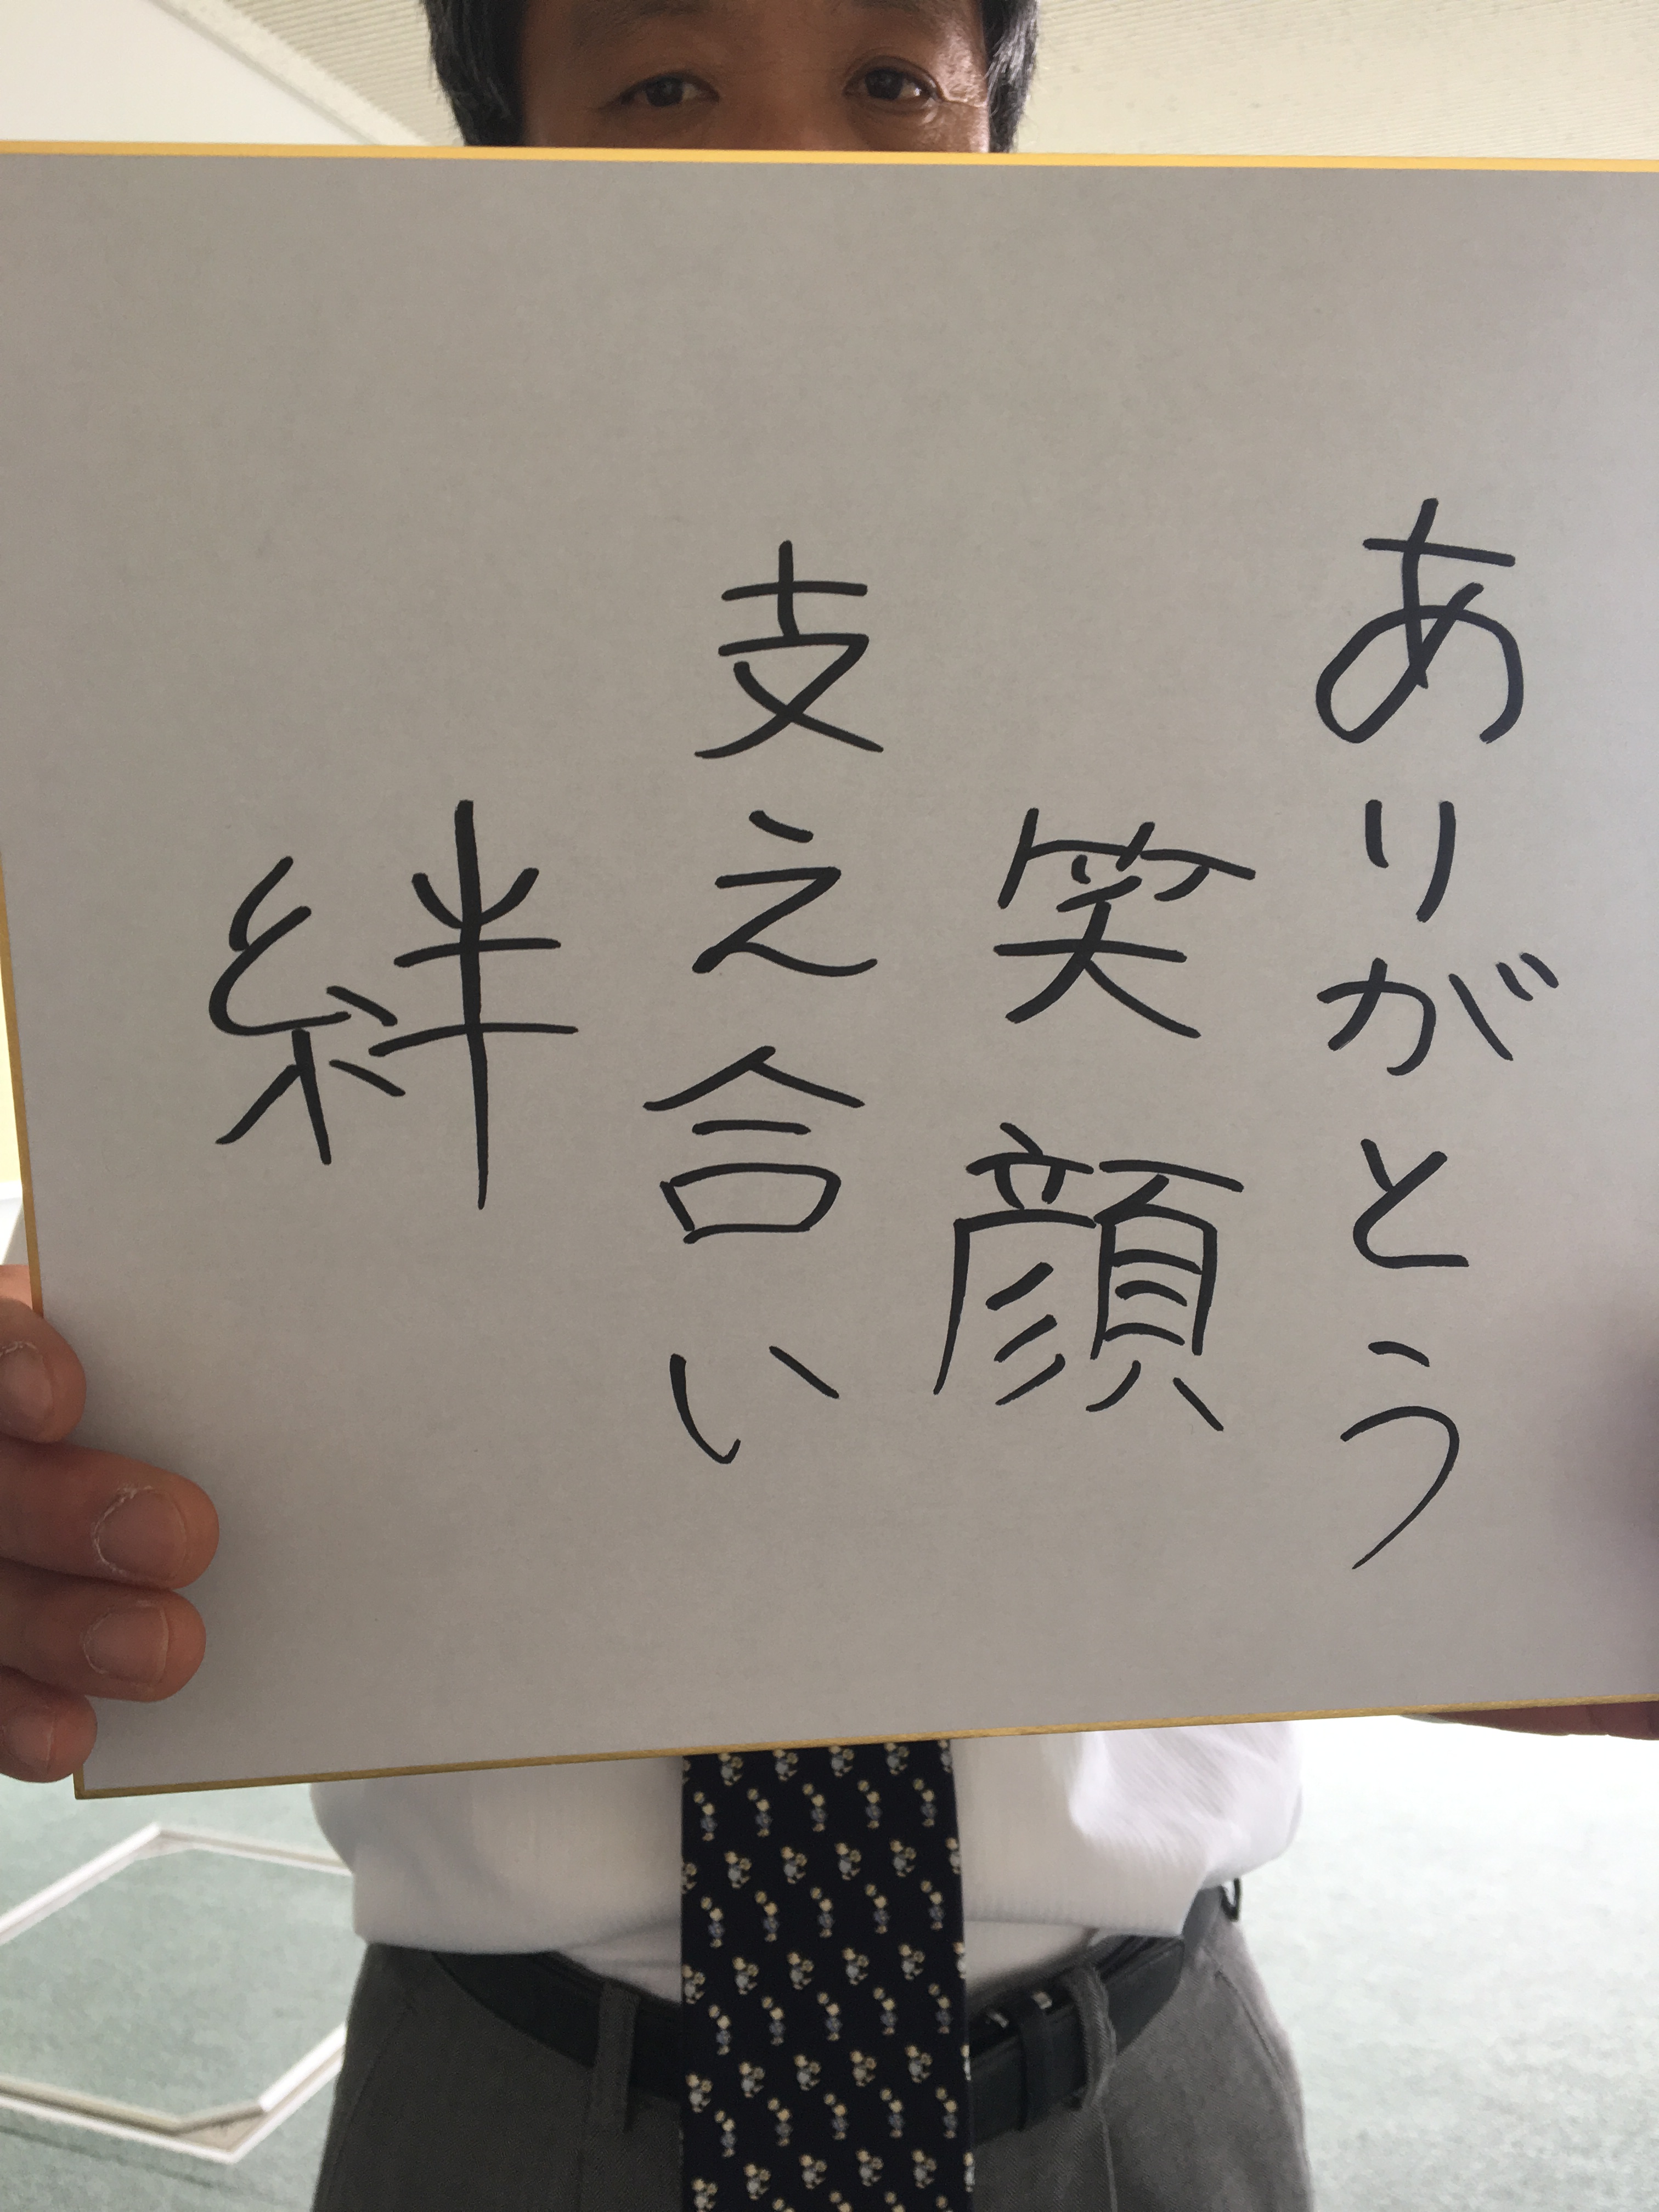 ありがとう
笑顔
支え合い
絆